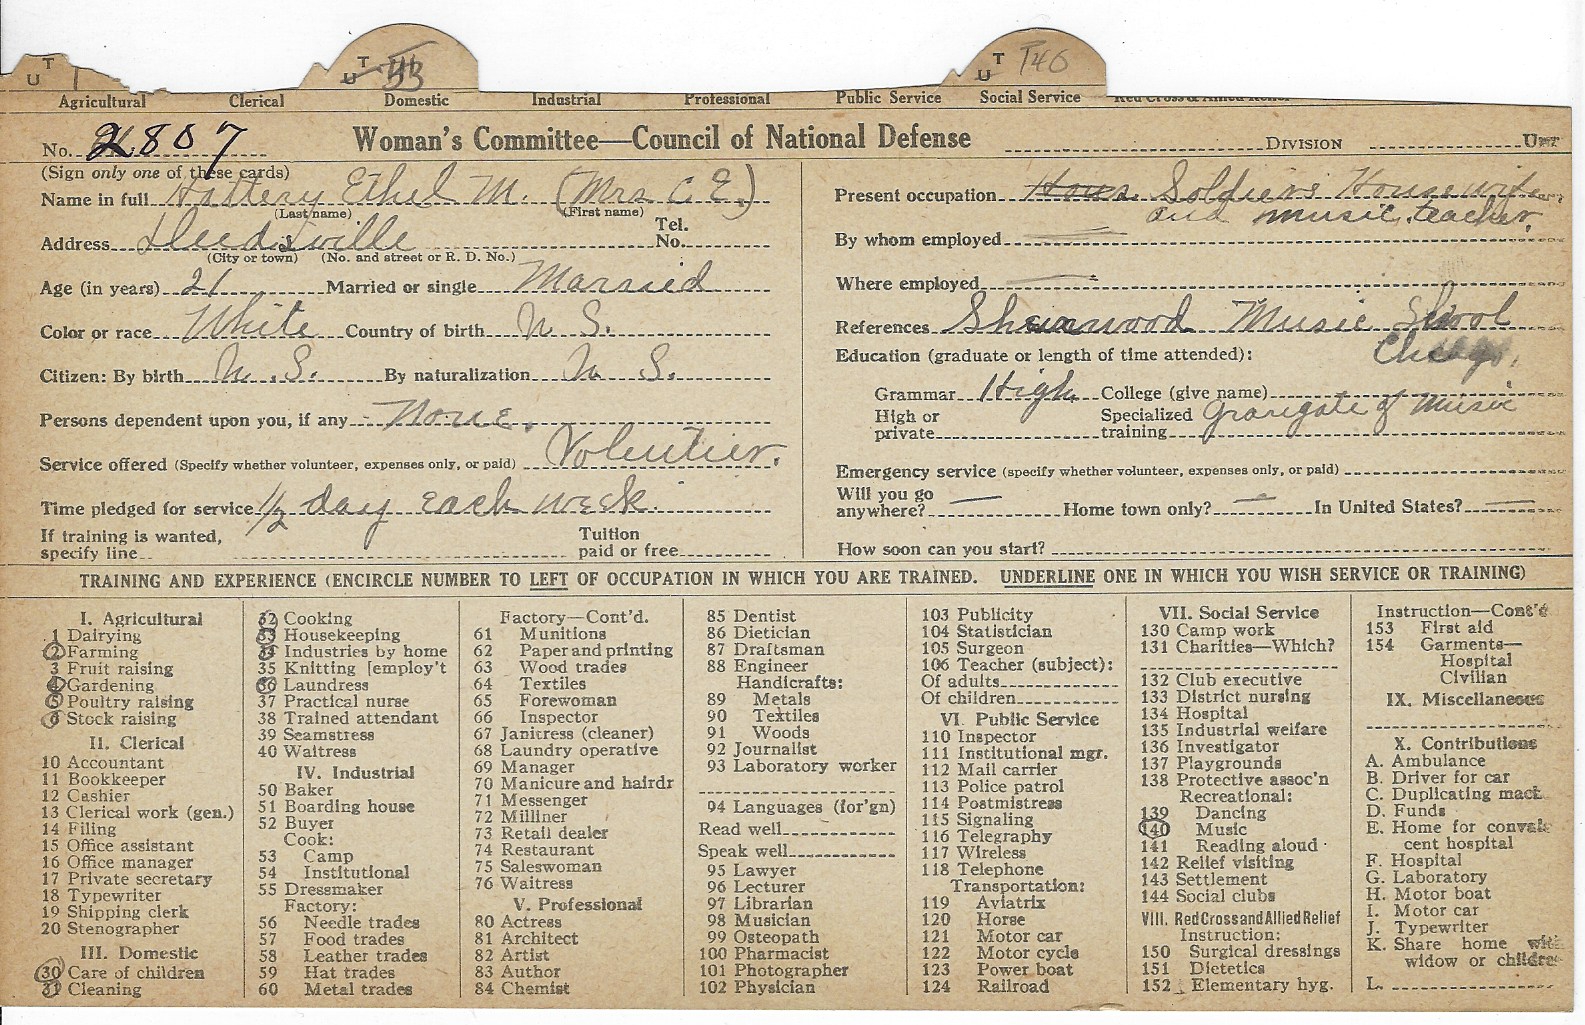 T U 1
T U 33
T U T40
Agricultural Clerical Domestic Industrial Professional Public Service Social Service Red Cross & Allied Relief
No. 2807 Woman's Committee—Council of National Defense DIVISION UNIT
(Sign only one of these cards)
Name in full Hattery Ethel M. (Mrs C. E.)
(Last name) (First name)
Address Deedsville Tel. No.
(City or town) (No. and street or R. D. No.)
Age (in years) 21 Married or single Married
Color or race White Country of birth U. S.
Citizen: By birth U. S. By naturalization U. S.
Persons dependent upon you, if any None.
Service offered (Specify whether volunteer, expenses only, or paid) Voluntier.
Time pledged for service 1/2 day each week.
If training is wanted, specify line Tuition paid or free
Present occupation Soldiers Housewife
and music teacher.
By whom employed
Where employed
References Sherwood Music School
Chicago.
Education (graduate or length of time attended):
Grammar High College (give name)
High or private Specialized training Graregate of Music
Emergency service (specify whether volunteer, expenses only, or paid)
Will you go anywhere? Home town only? In United States?
How soon can you start?
TRAINING AND EXPERIENCE (ENCIRCLE NUMBER TO LEFT OF OCCUPATION IN WHICH YOU ARE TRAINED. UNDERLINE ONE IN WHICH YOU WISH SERVICE OR TRAINING)
I. Agricultural
1 Dairying
2 Farming
3 Fruit raising
4 Gardening
5 Poultry raising
6 Stock raising
II. Clerical
10 Accountant
11 Bookkeeper
12 Cashier
13 Clerical work (gen.)
14 Filing
15 Office assistant
16 Office manager
17 Private secretary
18 Typewriter
19 Shipping clerk
20 Stenographer
III. Domestic
30 Care of children
31 Cleaning
32 Cooking
33 Housekeeping
34 Industries by home
35 Knitting [employ't
36 Laundress
37 Practical nurse
38 Trained attendant
39 Seamstress
40 Waitress
IV. Industrial
50 Baker
51 Boarding house
52 Buyer
Cook:
53 Camp
54 Institutional
55 Dressmaker
Factory:
56 Needle trades
57 Food trades
58 Leather trades
59 Hat trades
60 Metal trades
Factory—Cont'd.
61 Munitions
62 Paper and printing
63 Wood trades
64 Textiles
65 Forewoman
66 Inspector
67 Janitress (cleaner)
68 Laundry operative
69 Manager
70 Manicure and hairdr
71 Messenger
72 Milliner
73 Retail dealer
74 Restaurant
75 Saleswoman
76 Waitress
V. Professional
80 Actress
81 Architect
82 Artist
83 Author
84 Chemist
85 Dentist
86 Dietician
87 Draftsman
88 Engineer
Handicrafts:
89 Metals
90 Textiles
91 Woods
92 Journalist
93 Laboratory worker
94 Languages (for'gn)
Read well
Speak well
95 Lawyer
96 Lecturer
97 Librarian
98 Musician
99 Osteopath
100 Pharmacist
101 Photographer
102 Physician
103 Publicity
104 Statistician
105 Surgeon
106 Teacher (subject):
Of adults
Of children
VI. Public Service
110 Inspector
111 Institutional mgr.
112 Mail carrier
113 Police patrol
114 Postmistress
115 Signaling
116 Telegraphy
117 Wireless
118 Telephone
Transportation:
119 Aviatrix
120 Horse
121 Motor car
122 Motor cycle
123 Power boat
124 Railroad
VII. Social Service
130 Camp work
131 Charities—Which?
132 Club executive
133 District nursing
134 Hospital
135 Industrial welfare
136 Investigator
137 Playgrounds
138 Protective assoc'n
Recreational:
139 Dancing
140 Music
141 Reading aloud
142 Relief visiting
143 Settlement
144 Social clubs
VIII. Red Cross and Allied Relief
Instruction:
150 Surgical dressings
151 Dietetics
152 Elementary hyg.
Instruction—Cont'd
153 First aid
154 Garments—
Hospital
Civilian
IX. Miscellaneous
X. Contributions
A. Ambulance
B. Driver for car
C. Duplicating mach
D. Funds
E. Home for conval
cent hospital
F. Hospital
G. Laboratory
H. Motor boat
I. Motor car
J. Typewriter
K. Share home with
widow or childre
L.